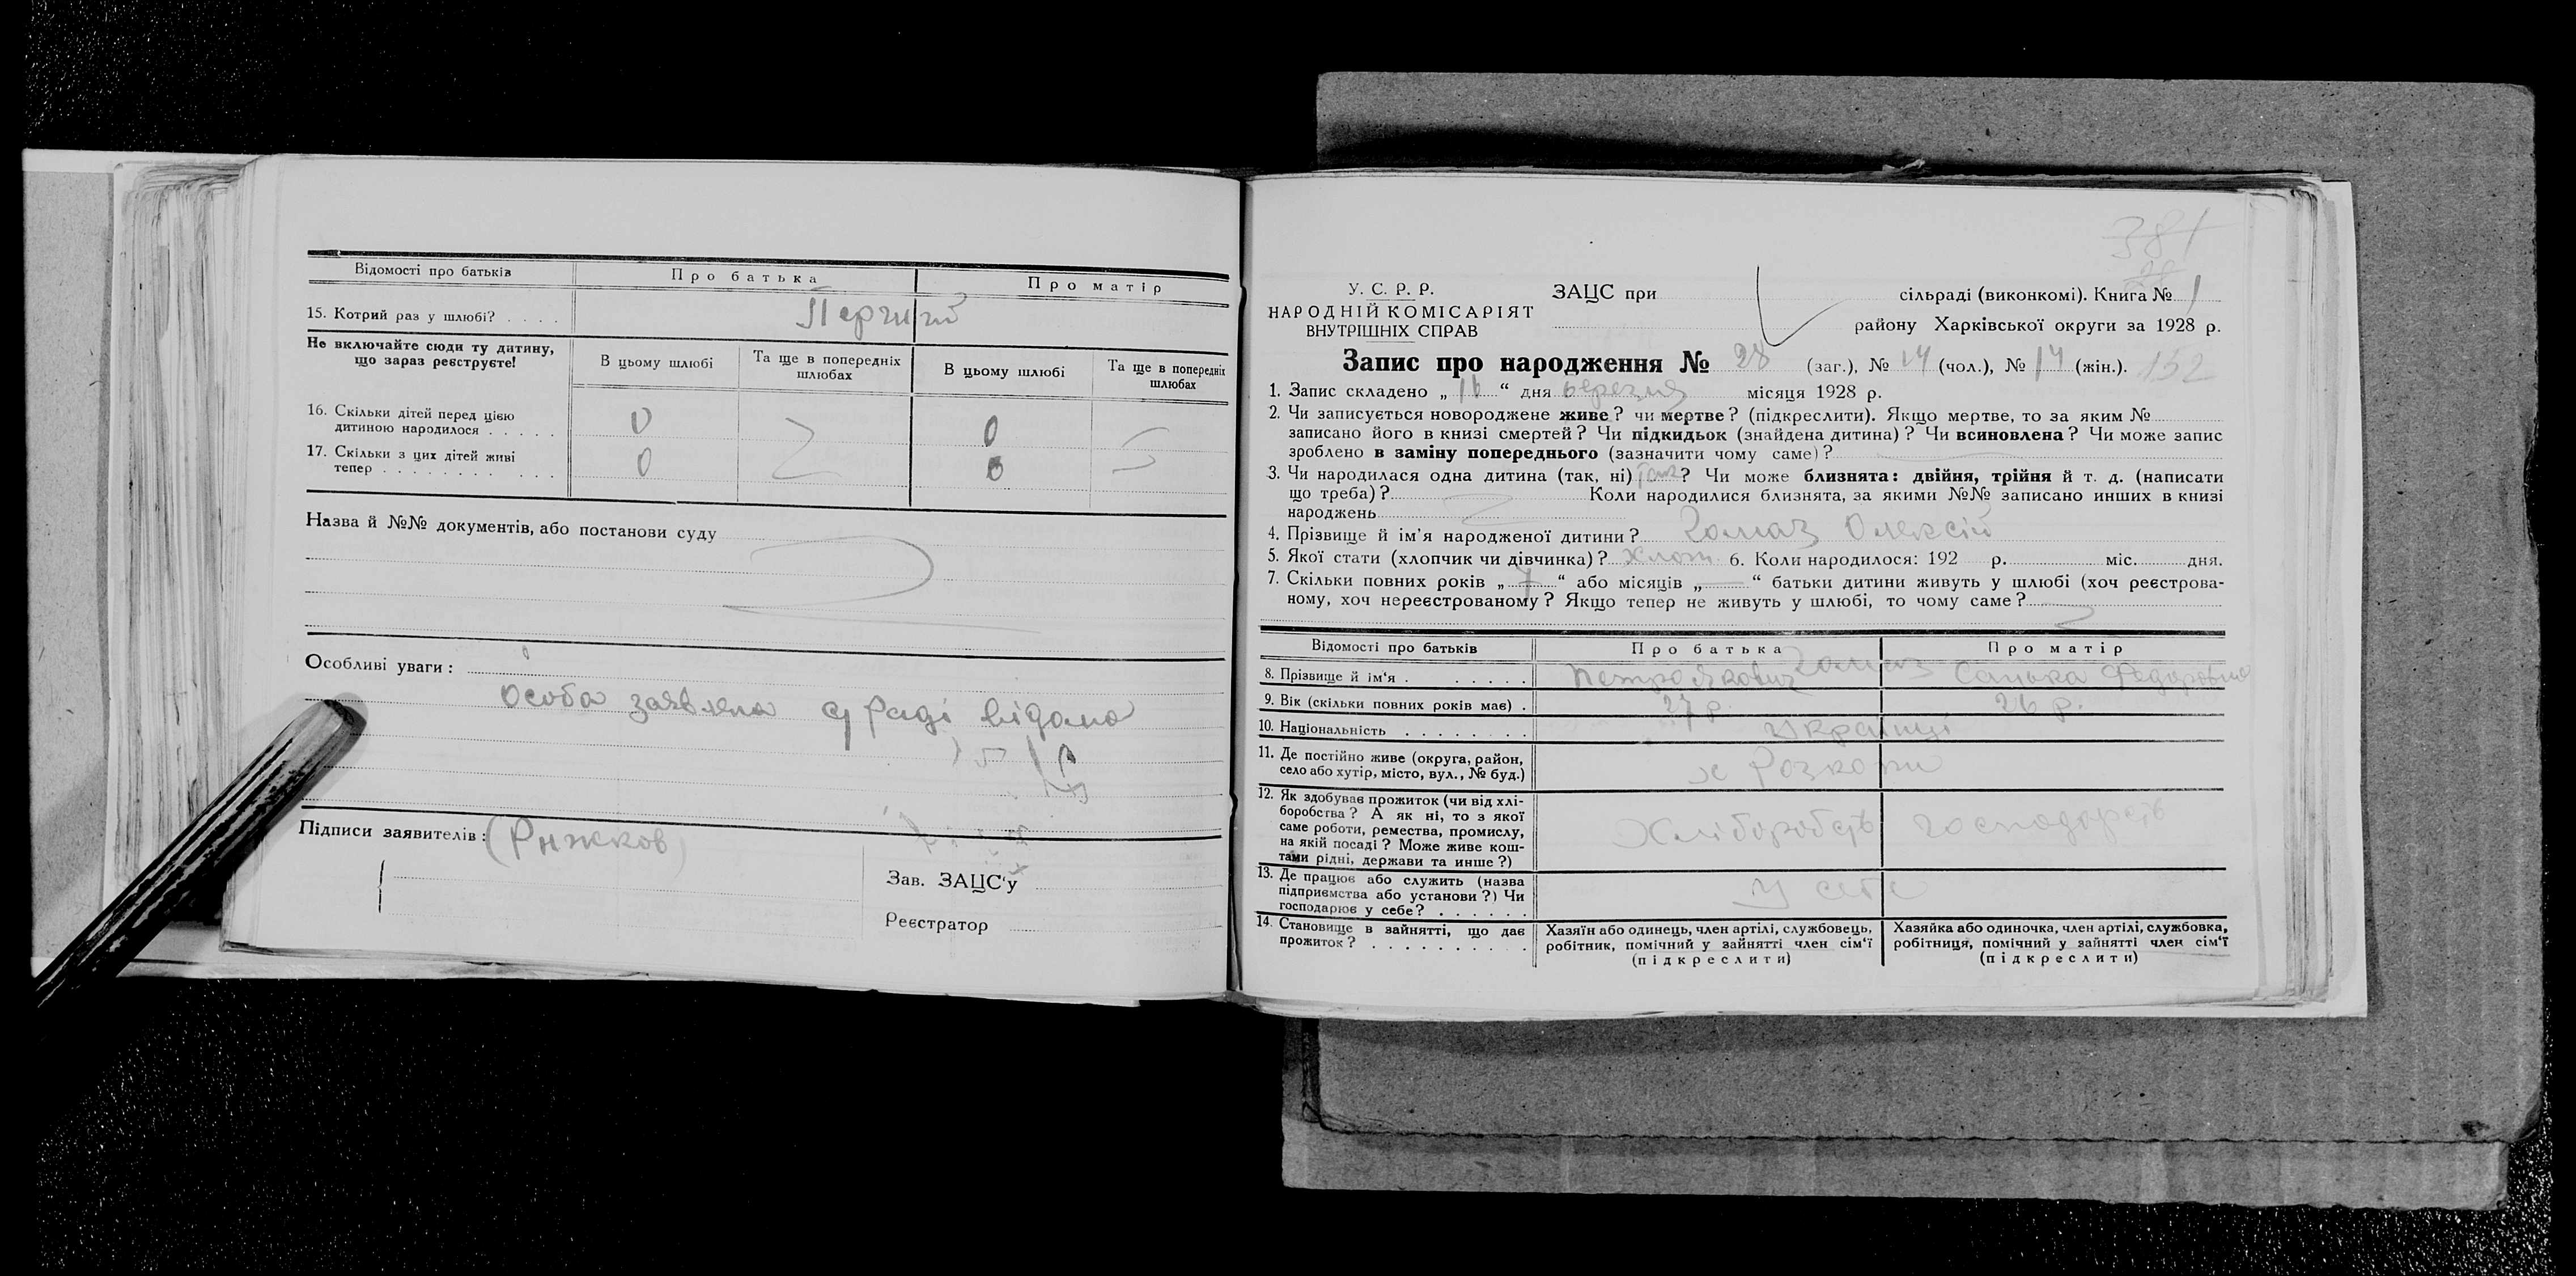 Відомості про батьків
Про батька
Про матір
15. Котрий раз у шлюбі? . . . .
Перший
Не включайте сюди ту дитину,
що зараз реєструєте!
В цьому шлюбі
Та ще в попередніх
шлюбах
В цьому шлюбі
Та ще в попередніх
шлюбах
16. Скільки дітей перед цією
дитиною народилося . . . . .
0
0
17. Скільки з цих дітей живі
тепер . . . . . . . . . . . .
0
0
Назва й №№ документів, або постанови суду
Особливі уваги:
Особа заявлена сраді відома
Підписи заявителів: (Рижков)
Зав. ЗАЦС'у
Реєстратор
381
28
У. С. Р. Р.
НАРОДНІЙ КОМІСАРІЯТ
ВНУТРІШНІХ СПРАВ
ЗАЦС при
сільраді (виконкомі). Книга № 1
району Харківської округи за 1928 р.
Запис про народження № 28 (заг.), № 14 (чол.), № 14 (жін.). 152
1. Запис складено „ 16 “ дня березня місяця 1928 р.
2. Чи записується новороджене живе? чи мертве? (підкреслити). Якщо мертве, то за яким №
записано його в книзі смертей? Чи підкидьок (знайдена дитина)? Чи всиновлена? Чи може запис
зроблено в заміну попереднього (зазначити чому саме)?
3. Чи народилася одна дитина (так, ні) так? Чи може близнята: двійня, трійня й т. д. (написати
що треба)? Коли народилися близнята, за якими №№ записано инших в книзі
народжень
4. Прізвище й ім'я народженої дитини? Гомаз Олексій
5. Якої стати (хлопчик чи дівчинка)? Хлоп. 6. Коли народилося: 192 р. міс. дня.
7. Скільки повних років „ 7 “ або місяців „ — “ батьки дитини живуть у шлюбі (хоч реєстрова-
ному, хоч нереєстрованому? Якщо тепер не живуть у шлюбі, то чому саме?
Відомості про батьків
Про батька
Про матір
8. Прізвище й ім'я . . . . . .
Гомаз
Петро Якович
Санька Федоровна
9. Вік (скільки повних років має) .
27 р.
26 р.
10. Національність . . . . . . . .
Українці
11. Де постійно живе (округа, район,
село або хутір, місто, вул., № буд.)
х Розкопи
12. Як здобуває прожиток (чи від хлі-
боробства? А як ні, то з якої
саме роботи, ремества, промислу,
на якій посаді? Може живе кош-
тами рідні, держави та инше?)
Хліборобств господарств
13. Де працює або служить (назва
підприємства або установи?) Чи
господарює у себе? . . . . . .
у себе
14. Становище в зайнятті, що дає
прожиток? . . . . . . . . . .
Хазяїн або одинець, член артілі, службовець,
робітник, помічний у зайнятті член сім'ї
(підкреслити)
Хазяйка або одиночка, член артілі, службовка,
робітниця, помічний у зайнятті член сім'ї
(підкреслити)